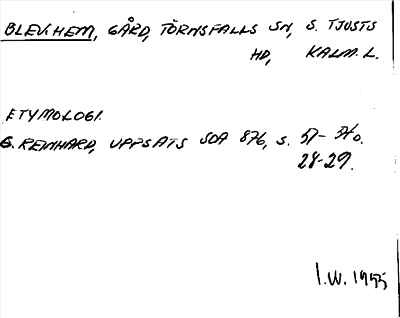 BLEKHEM, GÅRD, TÖRNSFALLS SN, S. TJUSTS
HD, KALM. L.
ETYMOLOGI.
G. REINHARD, UPPSATS SOA 876, S.
28-29.
I.W. 1955